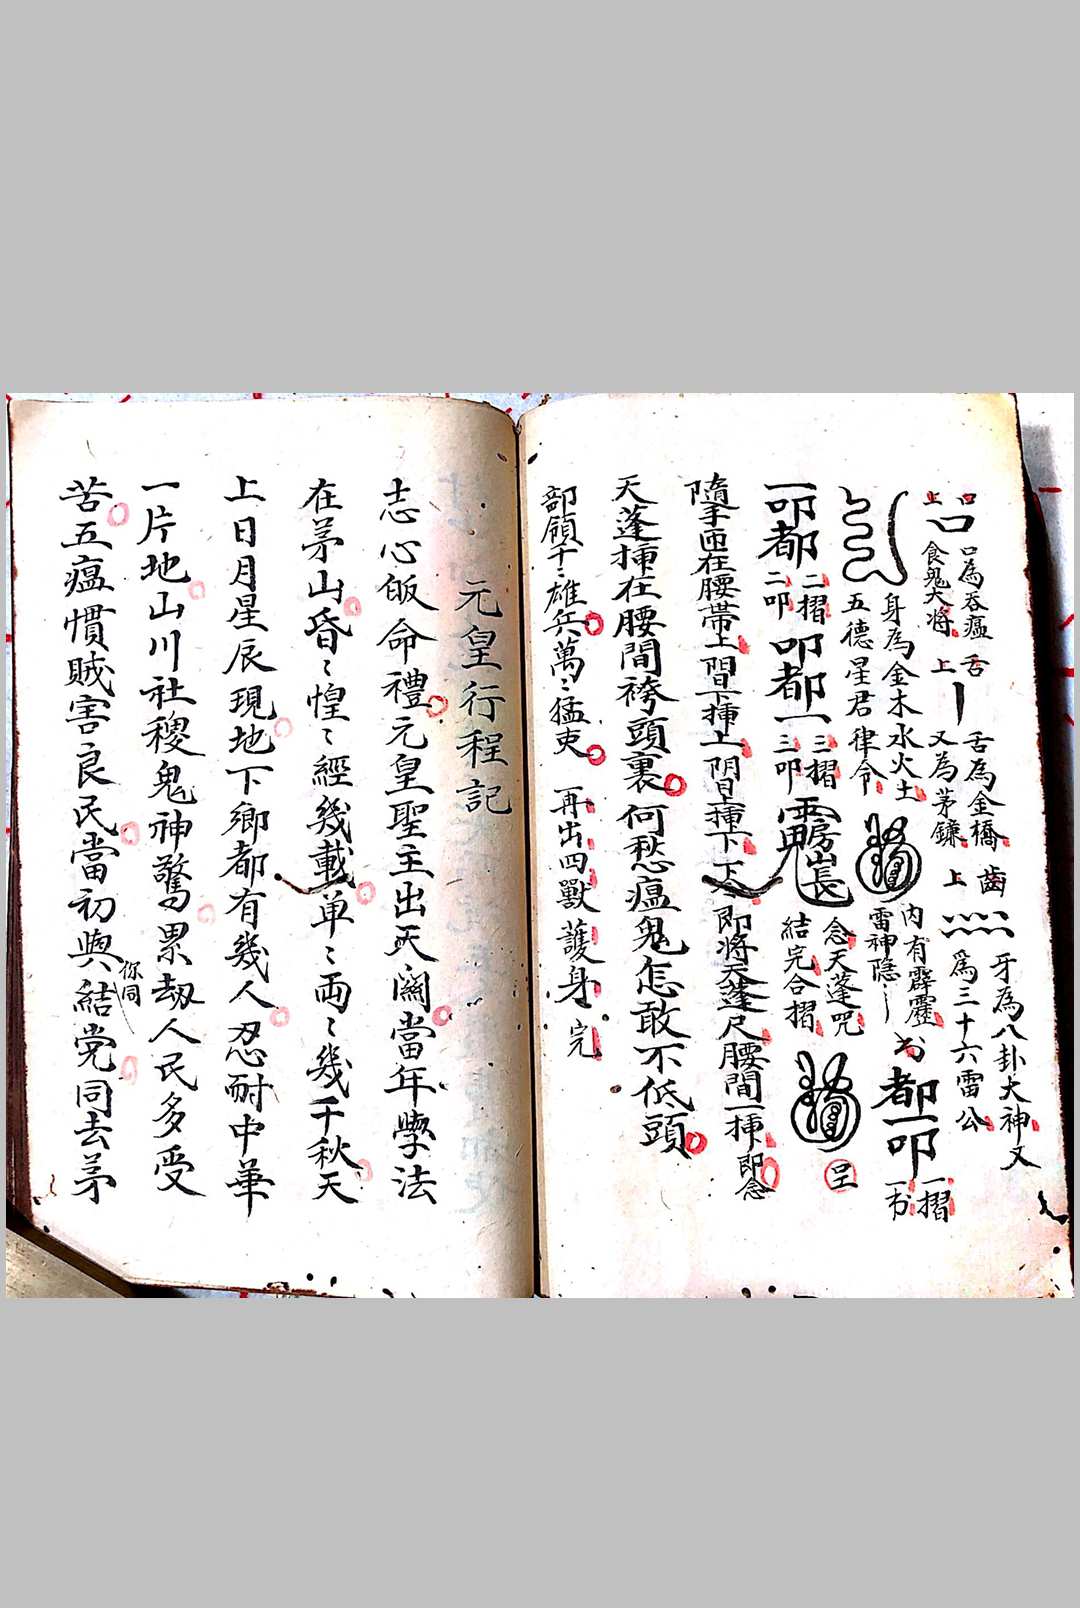 口 口為吞瘟 舌
上 食鬼大將 上
舌為金橋 齒
又為茅鐮 上
牙為八卦大神又
為三十六雷公
身為金木水火土
五德星君律令
内有霹靂
雷神隐
都一叩 一摺
一叩都 二摺
二叩 叩都一 三摺
三叩
念天蓬咒
結完合摺
隨手匝在腰帶上 即將天蓬尺腰間一揷即念
天蓬揷在腰間袴頭裏何愁瘟鬼怎敢不低頭
部領千〻雄兵萬〻猛吏 再出四獸護身完
元皇行程記
志心皈命禮元皇聖主出天關當年學法
在茅山昏〻惶〻經幾載单〻両〻幾千秋天
上日月星辰現地下鄉都有幾人忍耐中華
一片地山川社稷鬼神驚累劫人民多受
苦五瘟慣賊害良民當初與結党同去茅
你同